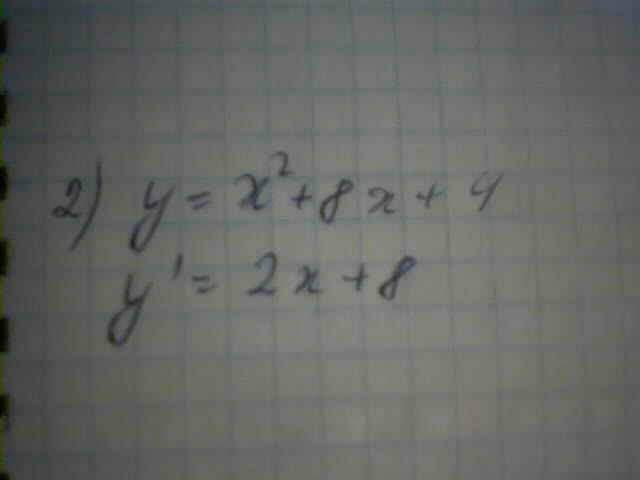 2) y = x² + 8x + 4
y' = 2x + 8